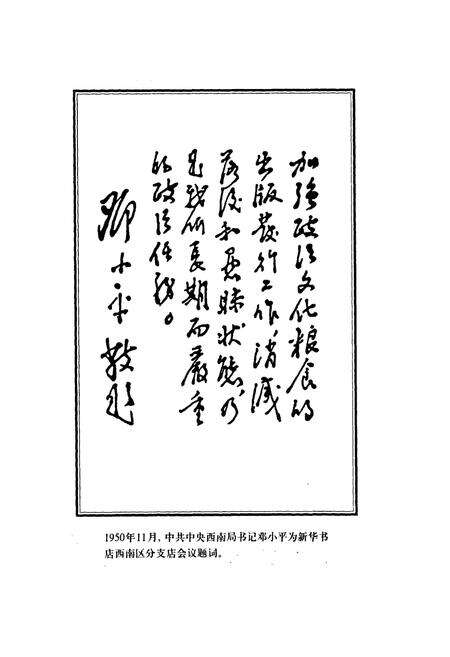 加強政治文化粮食的
出版發行工作，消滅
落後和愚昧狀態，乃
是我们長期而嚴重
的政治任務。
鄧小平敬题
1950年11月，中共中央西南局书记邓小平为新华书
店西南区分支店会议题词。